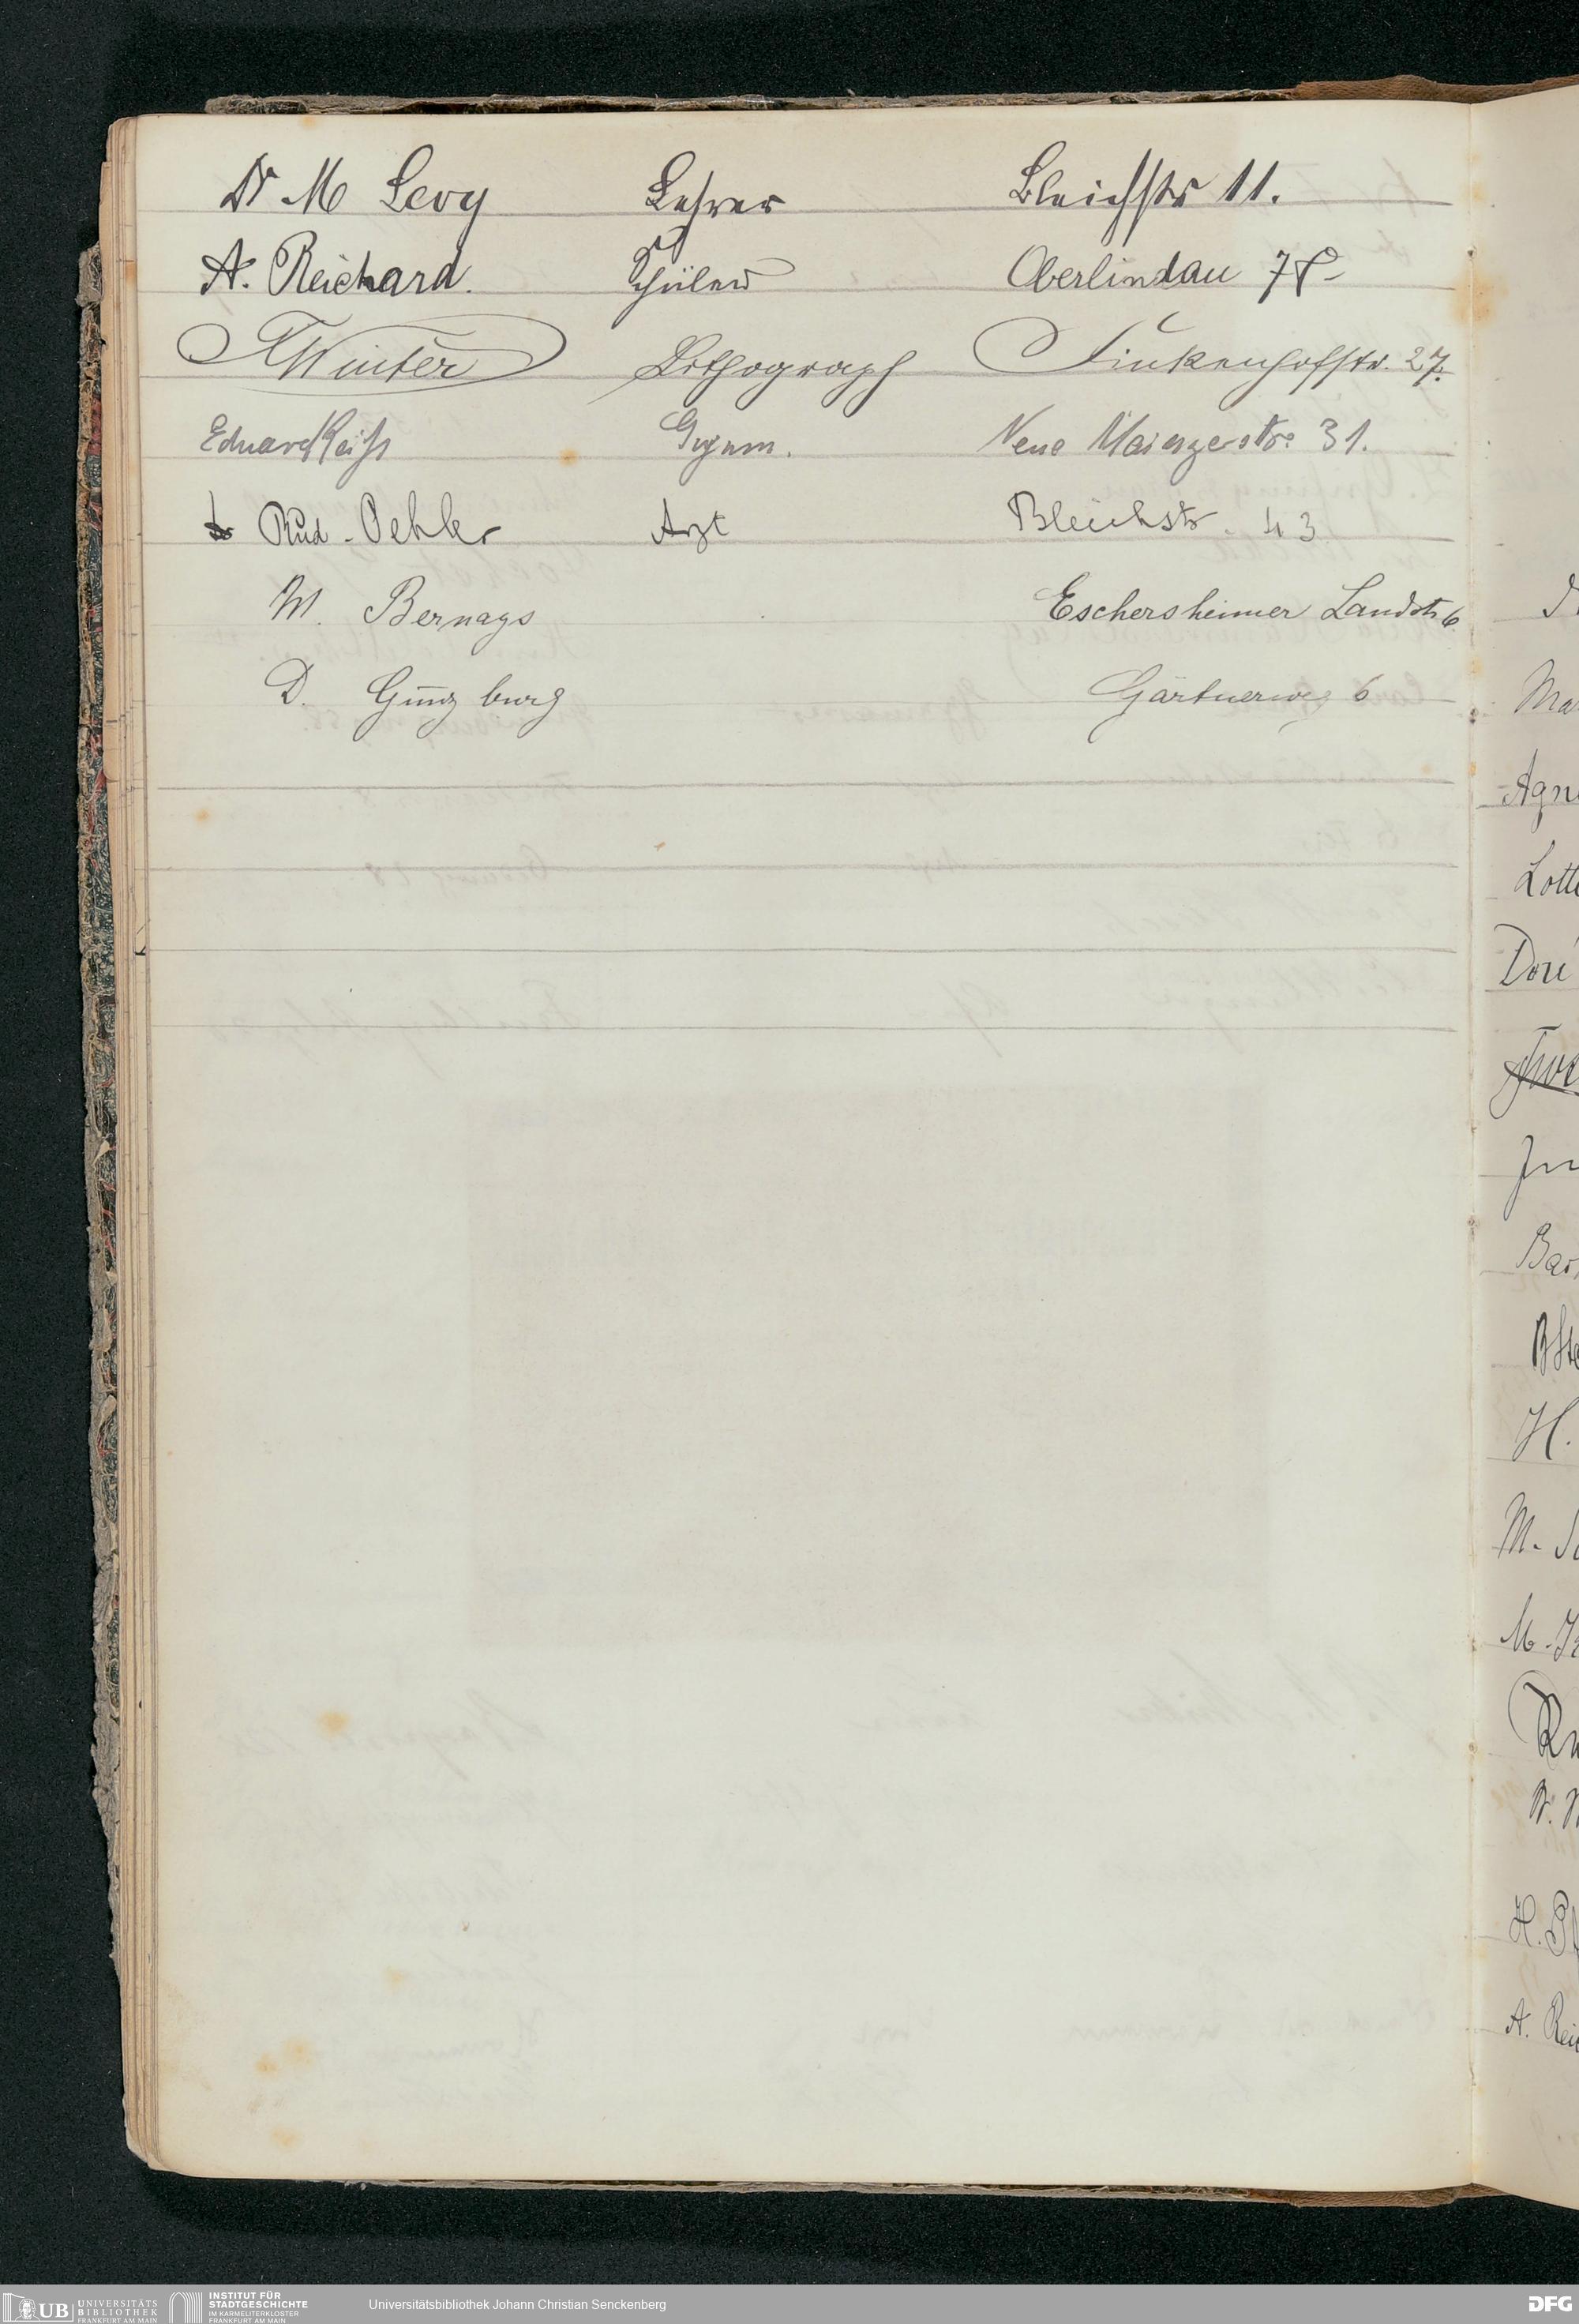 Dr M Levy Lehrer Bleichstr 11.
A. Reichard. Schüler Oberlindau 78
Winter Lithograph Finkenhofstr. 27.
Eduard Reiss Gymn. Neue Mainzerstr. 31.
Rud. Oehler Arzt Bleichstr. 43
M. Bernays Eschersheimer Landstr 6
D. Günzburg Gärtnerweg 6
Agn
Lott
H.
A. Rei
UB UNIVERSITÄTS
BIBLIOTHEK
FRANKFURT AM MAIN
INSTITUT FÜR
STADTGESCHICHTE
IM KARMELITERKLOSTER
FRANKFURT AM MAIN
Universitätsbibliothek Johann Christian Senckenberg
DFG